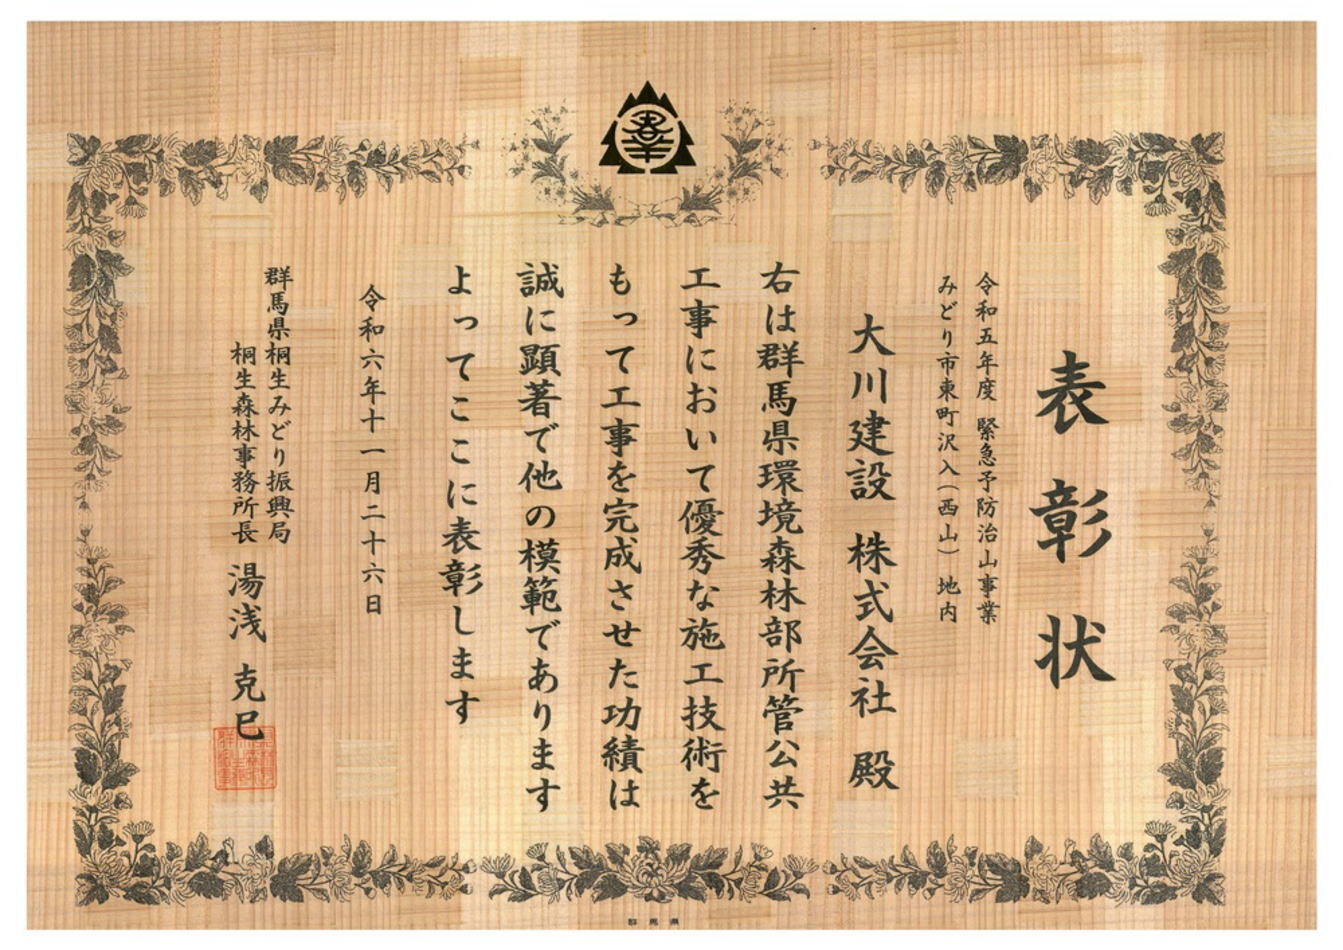 表彰状
令和五年度 緊急予防治山事業
みどり市東町沢入(西山) 地内
大川建設 株式会社 殿
右は群馬県環境森林部所管公共
工事において優秀な施工技術を
もって工事を完成させた功績は
誠に顕著で他の模範であります
よってここに表彰します
令和六年十一月二十六日
群馬県桐生みどり振興局
桐生森林事務所長 湯浅 克巳
群馬県